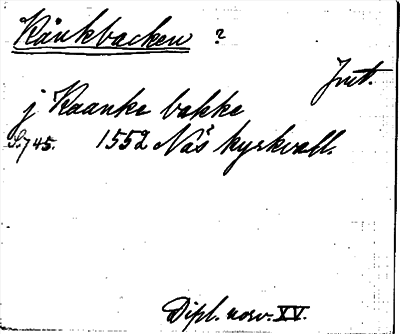 Kånkbacken ?
Jmt.
j Kaanke bakke
S. 745. 1552 Näs kyrkvall.
Dipl. norv. XV.